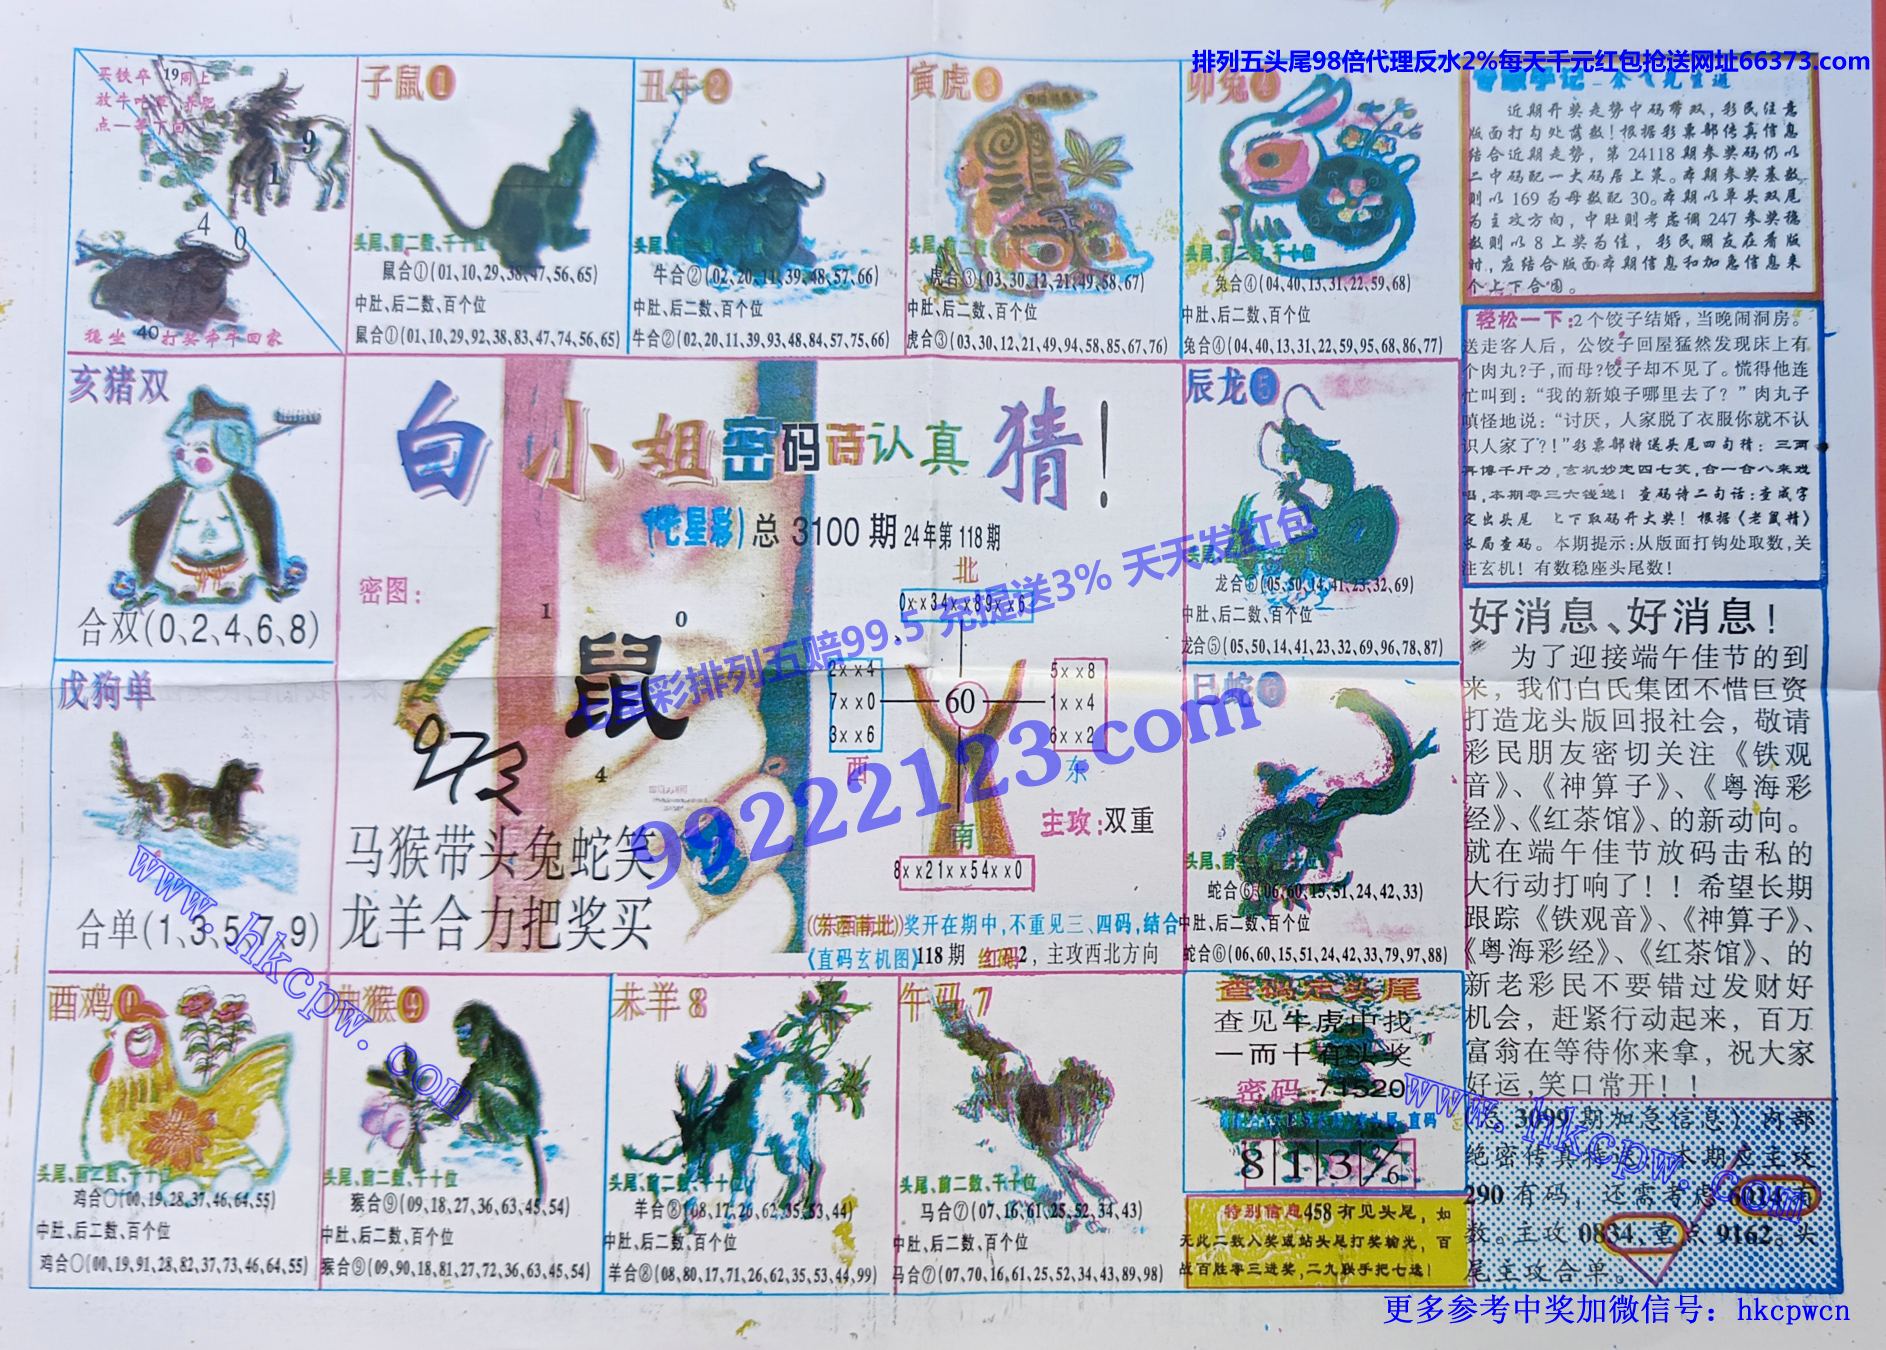 排列五头尾98倍代理反水2%每天千元红包抢送网址66373.com
买铁卒 19同上
点一等下回
9
1
4 0
稳坐 40 打奖牵牛回家
子鼠①
头尾、前二数、千十位
鼠合①(01,10,29,38,47,56,65)
中肚、后二数、百个位
鼠合①(01,10,29,92,38,83,47,74,56,65)
丑牛②
头尾、前二数、千十位
牛合②(02,20,11,39,48,57,66)
中肚、后二数、百个位
牛合②(02,20,11,39,93,48,84,57,75,66)
寅虎③
头尾、前二数、千十位
虎合③(03,30,12,21,49,58,67)
中肚、后二数、百个位
虎合③(03,30,12,21,49,94,58,85,67,76)
卯兔4
头尾、前二数、千十位
兔合④(04,40,13,31,22,59,68)
中肚、后二数、百个位
兔合④(04,40,13,31,22,59,95,68,86,77)
近期开奖走势中码带双，彩民注意
版面打勾处落数！根据彩票部传真信息
结合近期走势，第24118期参奖码仍以
二中码配一大码居上策。本期参奖基数
则以169为母数配30。本期以单头双尾
为主攻方向，中肚则考虑调247参奖稳
数则以8上奖为佳，彩民朋友在看版
时，应结合版面本期信息和加急信息来
个上下合围。
轻松一下：2个饺子结婚，当晚闹洞房。
送走客人后，公饺子回屋猛然发现床上有
个肉丸?子，而母?饺子却不见了。慌得他连
忙叫到：“我的新娘子哪里去了？”肉丸子
嗔怪地说：“讨厌，人家脱了衣服你就不认
识人家了?！”彩票部特送头尾四句猜：三两
再博千斤力，玄机妙定四七英，合一合八来戏
唱，本期零三六钱送！查码诗二句话：查成字
定出头尾 上下取码开大奖！根据《老鼠精》
长局查码。本期提示：从版面打钩处取数，关
注玄机！有数稳座头尾数！
亥猪双
合双(0、2、4、6、8)
戌狗单
合单(1、3、5、7、9)
白小姐密码请认真猜！
(七星彩)总 3100 期 24年第118期
密图：
1
0
鼠
4
马猴带头兔蛇笑
龙羊合力把奖买
北
0x x34x x89x x6
2x x4
7x x0
3x x6
西
60
5x x8
1x x4
6x x2
东
南
8x x21x x54x x0
主攻：双重
((东西南北))奖开在期中，不重见三、四码，结合
《直码玄机图》118期 红码2，主攻西北方向
七星彩排列五赔99.5 充提送3% 天天发红包
99222123.com
辰龙⑤
头尾、
龙合⑤(05,50,14,41,23,32,69)
中肚、后二数、百个位
龙合⑤(05,50,14,41,23,32,69,96,78,87)
巳蛇⑥
头尾、前二数、千十位
蛇合⑥(06,60,15,51,24,42,33)
中肚、后二数、百个位
蛇合⑥(06,60,15,51,24,42,33,79,97,88)
好消息、好消息！
为了迎接端午佳节的到
来，我们白氏集团不惜巨资
打造龙头版回报社会，敬请
彩民朋友密切关注《铁观
音》、《神算子》、《粤海彩
经》、《红茶馆》、的新动向。
就在端午佳节放码击私的
大行动打响了！！希望长期
跟踪《铁观音》、《神算子》、
《粤海彩经》、《红茶馆》、的
新老彩民不要错过发财好
机会，赶紧行动起来，百万
富翁在等待你来拿，祝大家
好运，笑口常开！！
酉鸡0
头尾、前二数、千十位
鸡合〇(00,19,28,37,46,64,55)
中肚、后二数、百个位
鸡合〇(00,19,91,28,82,37,73,46,64,55)
申猴⑨
头尾、前二数、千十位
猴合⑨(09,18,27,36,63,45,54)
中肚、后二数、百个位
猴合⑨(09,90,18,81,27,72,36,63,45,54)
未羊8
头尾、前二数、千十位
羊合⑧(08,17,26,62,35,53,44)
中肚、后二数、百个位
羊合⑧(08,80,17,71,26,62,35,53,44,99)
午马7
头尾、前二数、千十位
马合⑦(07,16,61,25,52,34,43)
中肚、后二数、百个位
马合⑦(07,70,16,61,25,52,34,43,89,98)
查码定头尾
查见牛虎中找
一而十有头奖
密码：71520
8 1 3 6
特别信息458有见头尾，如
无此二数入奖或站头尾打奖输光，百
战百胜零三进奖，二九联手把七送！
总3099期加急信息）内部
绝密传真 本期应主攻
290有码，还需考虑6014
数。主攻0834，重点9162。头
尾主攻合单。
www.hkcpw.com
www.hkcpw.com
更多参考中奖加微信号：hkcpwcn